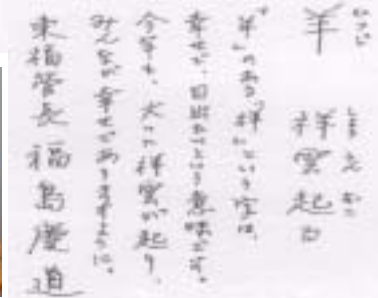 ひつじ
羊 祥雲起る
「羊」のある「祥」という字は、
幸せで、目出たいという意味です。
今年も、大いに祥雲が起り、
みんなが幸せでありますように。
東福管長 福島慶道